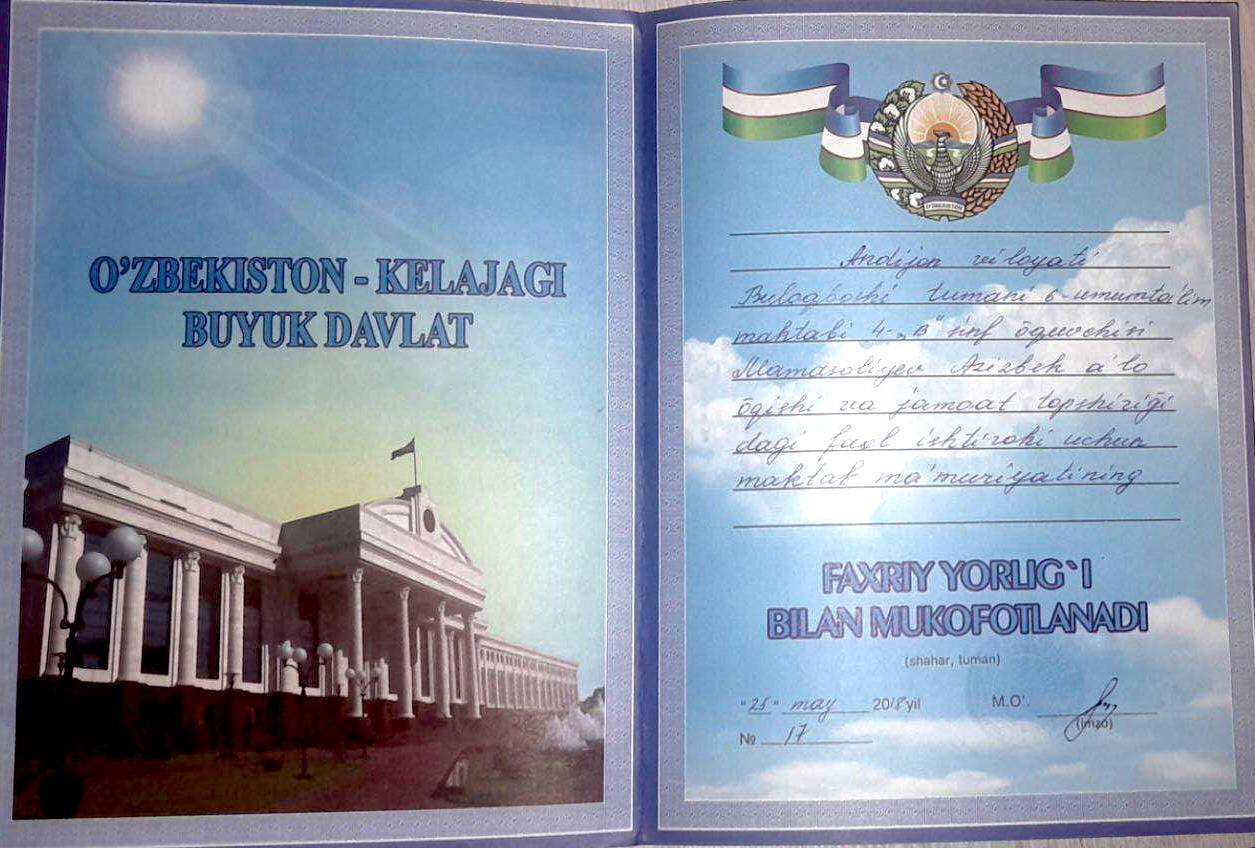 O'ZBEKISTON - KELAJAGI
BUYUK DAVLAT
O'ZBEKISTON
Andijon viloyati
Buloqboshi tumani 6-umumta'lim
maktabi 4-„B" sinf õquvchisi
Mamasoliyev Azizbek a'lo
õqishi va jamoat topshiriği
dagi faol ishtiroki uchun
maktab ma'muriyatining
FAXRIY YORLIG`I
BILAN MUKOFOTLANADI
(shahar, tuman)
"25" may 2018 yil M.O'.
(imzo)
№ 17